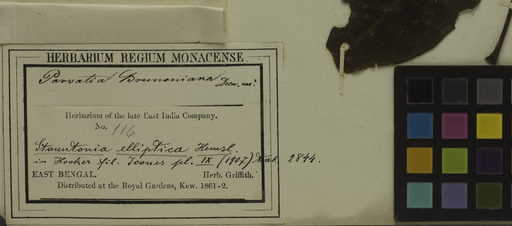 HERBARIUM REGIUM MONACENSE.
Parvatia Brunoniana Dcsn.
Herbarium of the late East India Company,
No. 116
Stauntonia elliptica Hemsl.
in Hooker fil. Icones pl. IX (1907) tab. 2844.
EAST BENGAL. Herb. Griffith.
Distributed at the Royal Gardens, Kew. 1861-2.